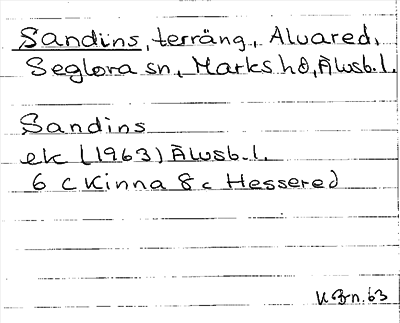 Sandins, terräng, Alvared,
Seglora sn, Marks hd, Älvsb. l.
Sandins
ek (1963) Älvsb. l.
6 c Kinna 8 c Hessered